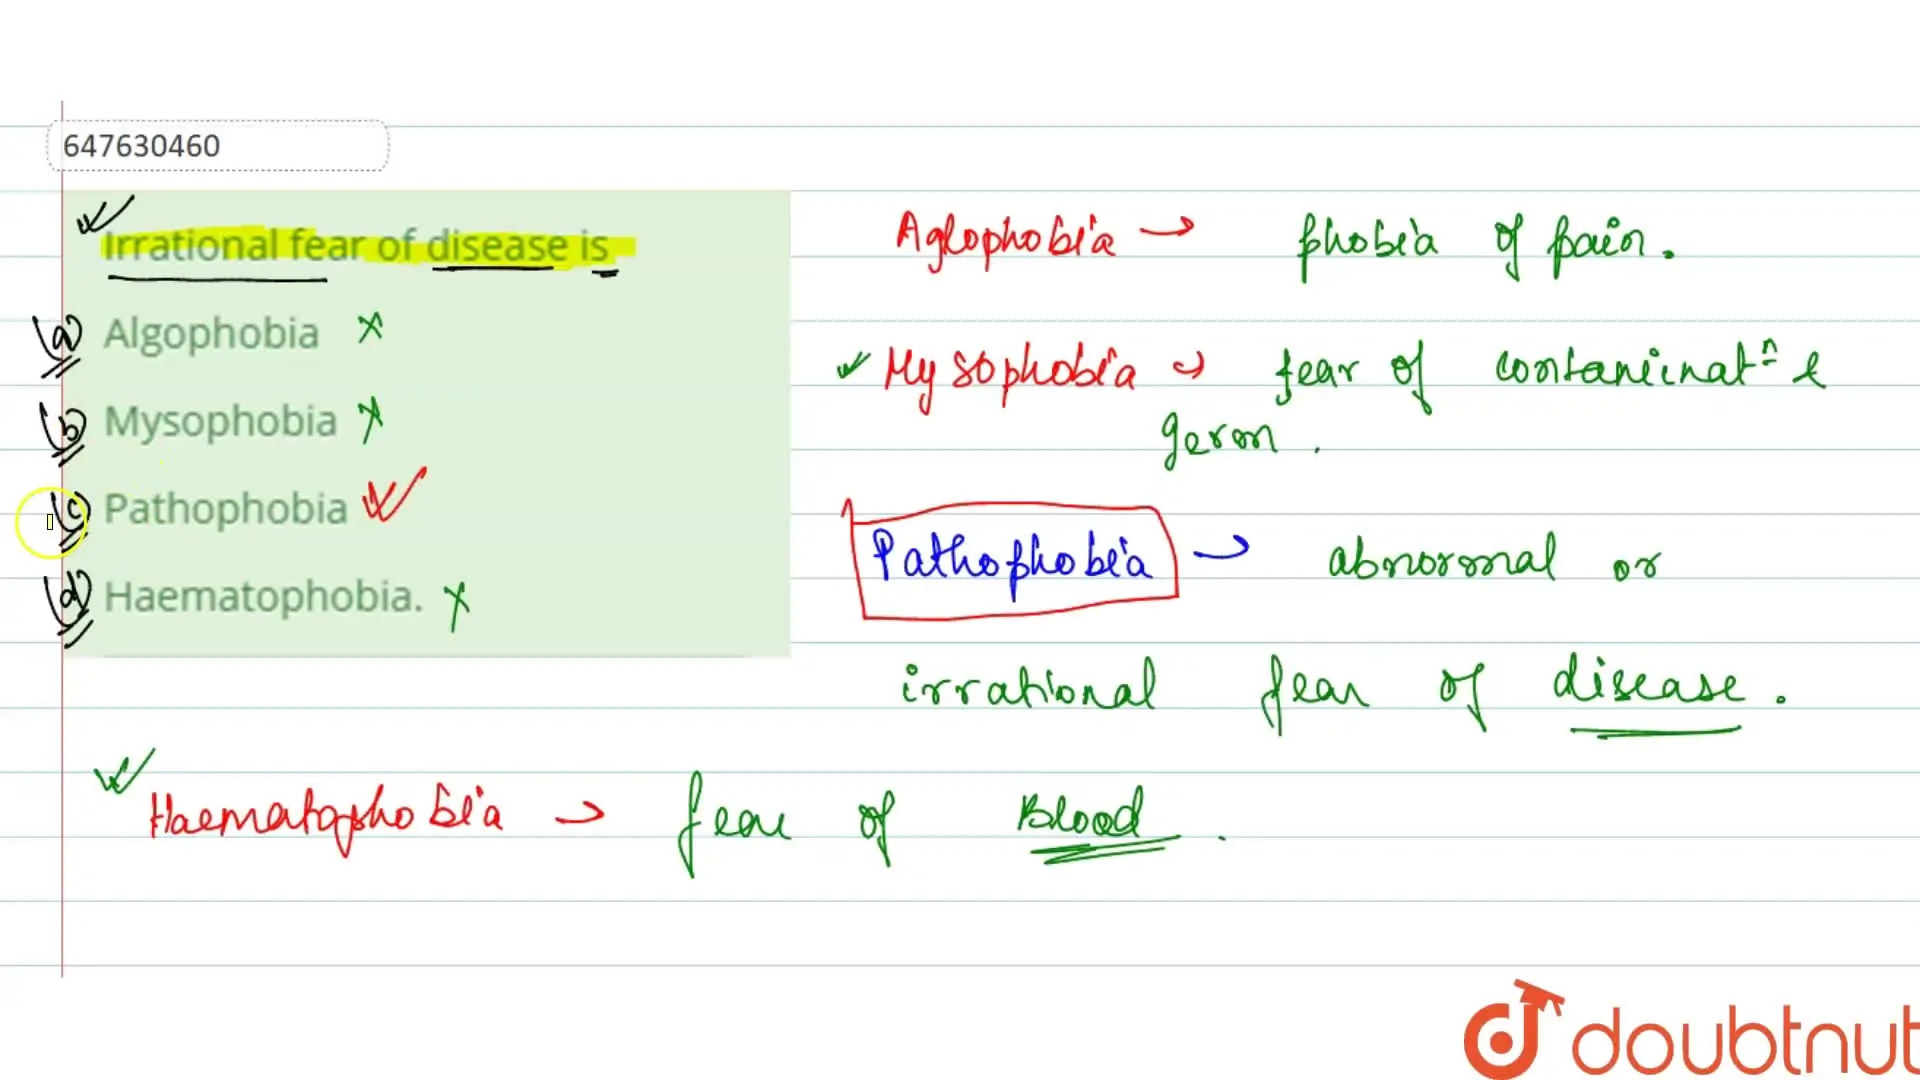 647630460
Irrational fear of disease is
(a) Algophobia
(b) Mysophobia
(c) Pathophobia
(d) Haematophobia.
Aglophobia → phobia of pain.
Mysophobia → fear of contaminatⁿ &
germ.
Pathophobia → abnormal or
irrational fear of disease.
Haematophobia → fear of Blood.
doubtnut